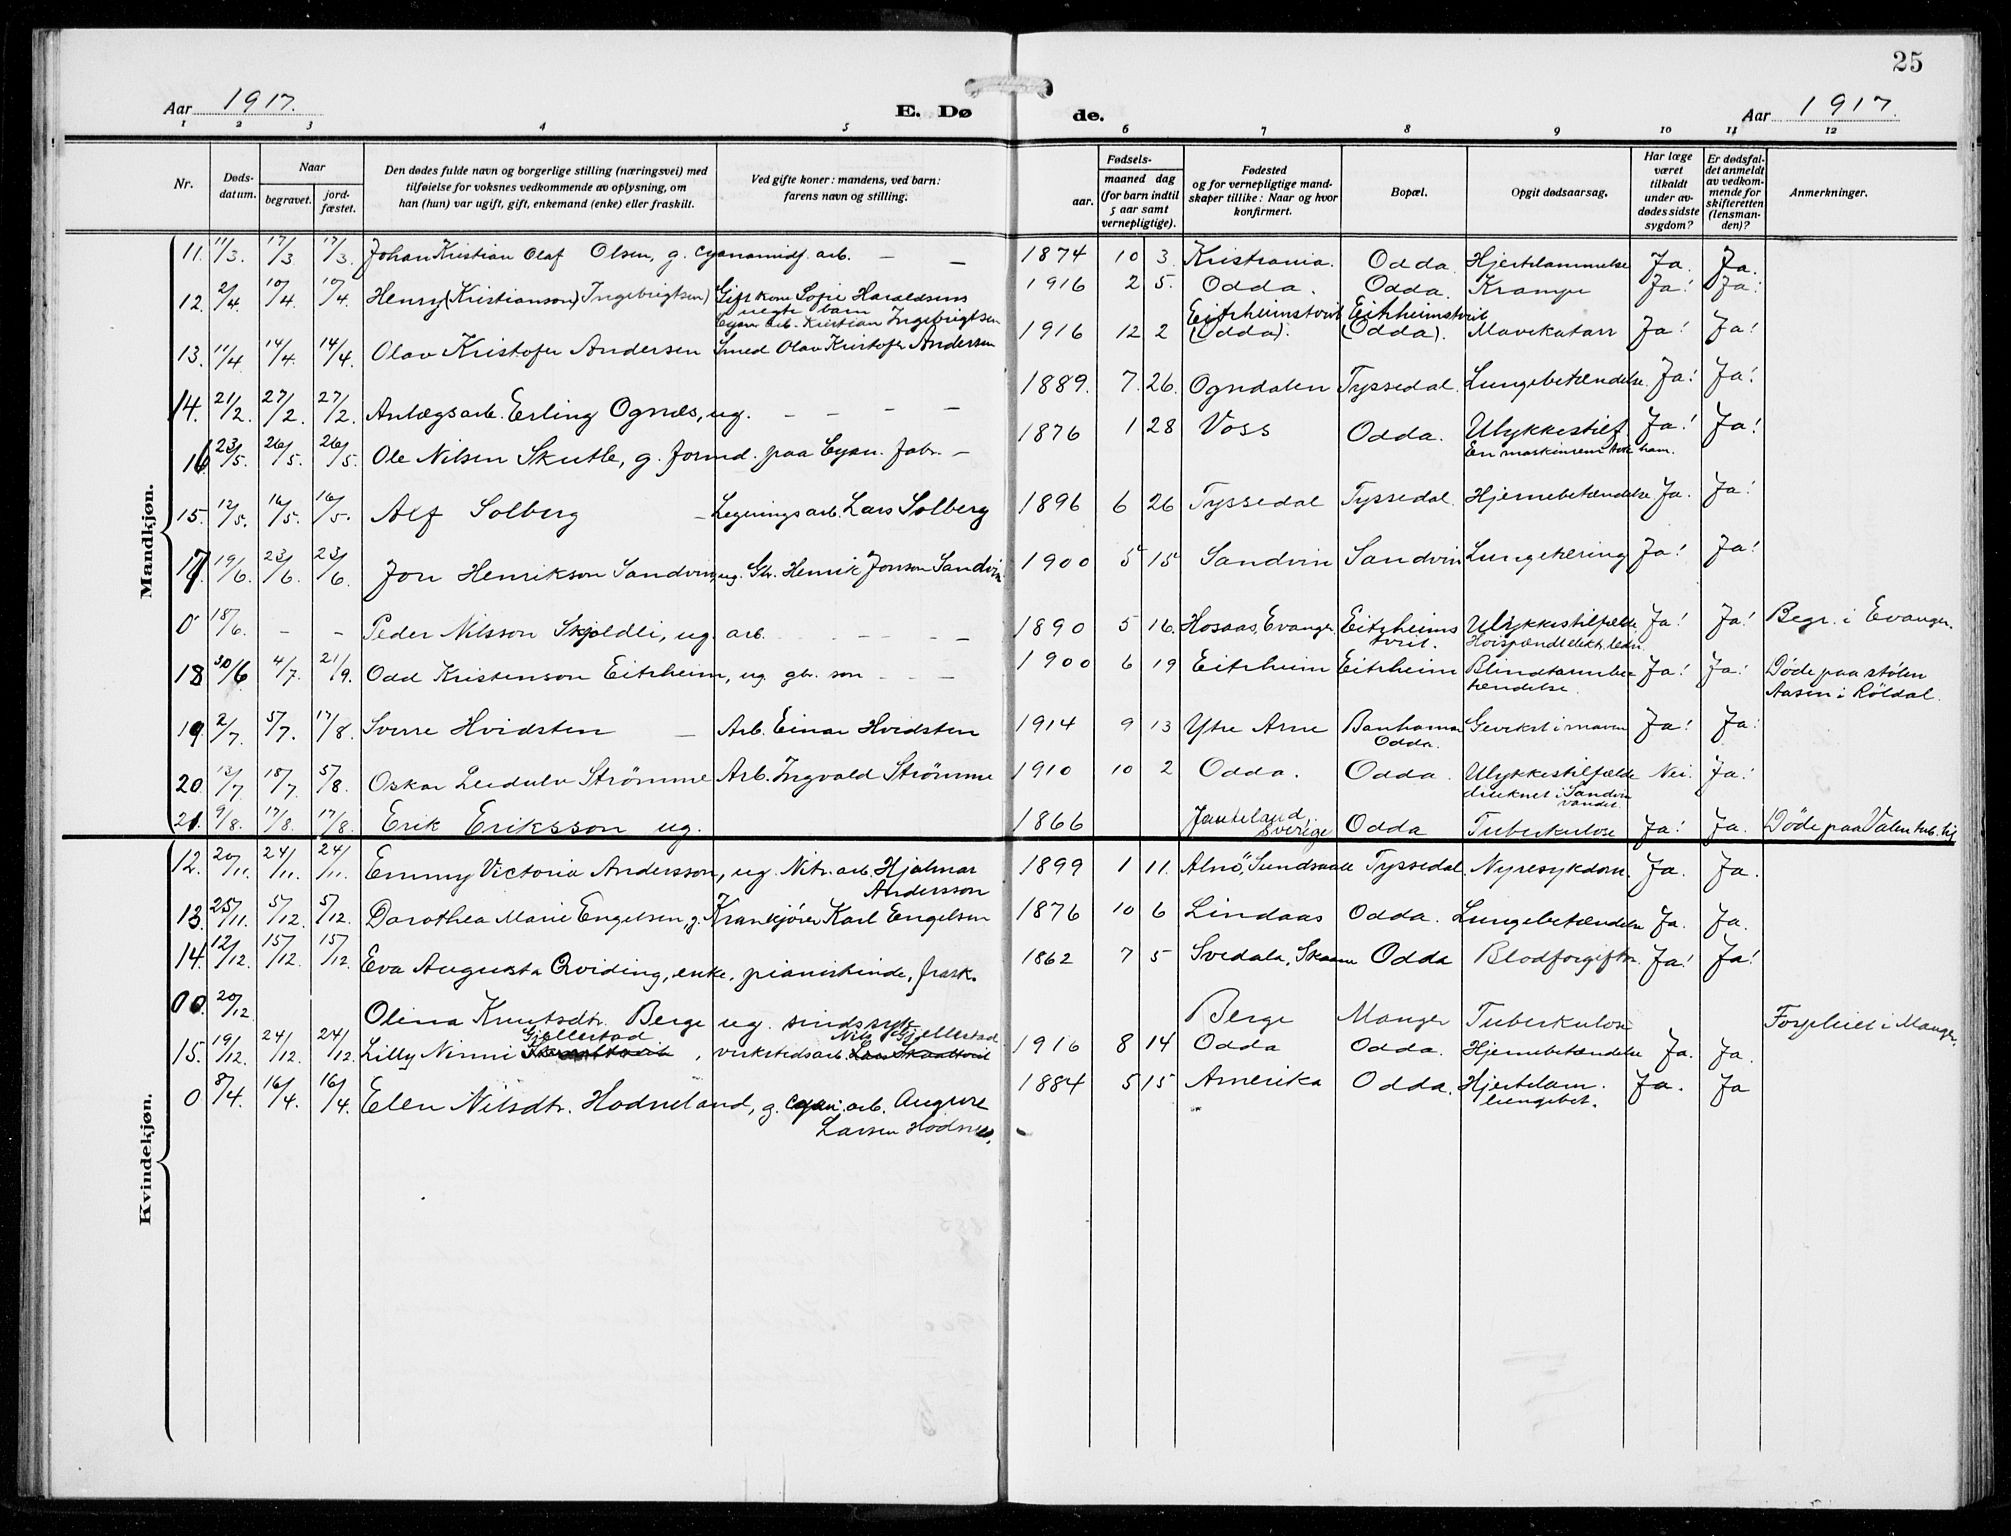 25
Aar 1917. E. Dø de. Aar 1917.
1 2 3 4 5 6 7 8 9 10 11 12
Nr. Døds-datum. Naar begravet. jord-fæstet. Den dødes fulde navn og borgerlige stilling (næringsvei) med tilføielse for voksnes vedkommende av oplysning, om han (hun) var ugift, gift, enkemand (enke) eller fraskilt. Ved gifte koner: mandens, ved barn: farens navn og stilling. Fødsels- aar. maaned dag (for barn indtil 5 aar samt vernepligtige). Fødested og for vernepligtige mand-skaper tillike: Naar og hvor konfirmert. Bopæl. Opgit dødsaarsag. Har læge været tilkaldt under av-dødes sidste sygdom? Er dødsfal-det anmeldt av vedkom-mende for skifteretten (lensman-den)? Anmerkninger.
Mandkjøn.
11. 11/3. 17/3 17/3. Johan Kristian Olaf Olsen, g. cyanamidf. arb. — — 1874 10 3. Kristiania. Odda. Hjertelammelse Ja. Ja.
12. 2/4 10/4. 10/4. Henry (Kristianson) Ingebrigtsen) Gift kone Sofie Haraldsens uegte barn 1916 2 5. Odda. Odda. Krampe Ja! Ja!
Cyan arb. Kristian Ingebrigtsen
13. 11/4 14/4. 14/4. Olav Kristofer Andersen Smed Olav Kristofer Andersen 1916 12 2 Eitrheimstvit (Odda). Eitrheimstvit (Odda). Mavekatarr Ja! Ja!
14. 21/2. 27/2. 27/2. Anlægsarb. Erling Ognæs, ug. — — — — 1889. 7. 26. Ogndalen Tyssedal. Lungebetændelse. Ja! Ja!
16 23/5. 26/5. 26/5. Ole Nilsen Skutle, g. formd. paa Cyan. fabr. — 1876 1 28 Voss Odda. Ulykkestilf. Ja! Ja!
En maskinrem tok ham.
15. 12/5. 16/5. 16/5. Alf Solberg — Legeringsarb. Lars Solberg 1896 6 26 Tyssedal Tyssedal. Hjernebetændelse Ja. Ja!
17. 19/6. 23/6 23/6 Jon Henrikson Sandvin, ug. Gbr. Henrik Jonson Sandvin 1900 5 15 Sandvin Sandvin Lungetæring Ja! Ja!
0 18/6. — — Peder Nilsson Skjoldli, ug. arb. — — — — 1890 5 16. Hosaas, Evanger. Eitrheims tvit. Ulykkestilfælde Ja! Ja! Begr. i Evanger.
Høispændt elektr. ledn.
18 30/6 4/7. 21/9. Odd Kristenson Eitrheim, ug. gbr. søn — — — 1900 6 19 Eitrheim Eitrheim Blindtarmbe-tændelse. Ja! Ja! Døde paa stølen Aasen i Röldal.
19 2/7. 5/7. 17/8. Sverre Hvidsten — Arb. Einar Hvidsten 1914 9 13 Ytre Arne Odda. Gevekst i maven Ja! Ja!
20. 13/7 18/7. 5/8. Oskar Leidulv Strömme Arb. Ingvald Strömme 1910 10 2 Odda. Odda. Ulykkestilfælde Nei. Ja!
druknet i Sandvin vandet.
21. 9/8. 17/8. 17/8. Erik Eriksson ug. 1866 Jemteland, Sverige Odda Tuberkulose Ja! Ja. Døde paa Valen
Kvindekjøn.
12. 20/11. 24/11. 24/11. Emmy Victoria Andersson, ug. Nitr. arb. Hjalmar Andersson 1899 1 11. Alnö, Tyssedal. Nyresykdom. Ja. Ja.
13. 25/11. 5/12. 5/12. Dorothea Marie Engelsen, g. Krankjörer Karl Engelsen 1876 10 6 Lindaas Odda. Lungebetændelse Ja. Ja.
14. 12/12. 15/12. 15/12. Eva Augusta Qviding, enke, pianistinde, frask. 1862 7 5 Svedala, Skaane Odda Blodforgiftn. Ja! Ja!
00. 20/12. Olina Knutsdtr. Berge ug. sindssyk Berge Manger Tuberkulose Forpleiet i Manger.
15. 19/12. 24/12. 24/12. Lilly Ninni Gjellestad, verkstedsarb. Nils Gjellestad 1916 8 14 Odda Odda. Hjernebetændelse Ja. Ja.
0 8/4. 16/4. 16/4 Elen Nilsdtr. Hodneland, g. cyan. arb. 1884 5 15 Amerika Odda. Hjertelam. lungebet. Ja. Ja
Larsen